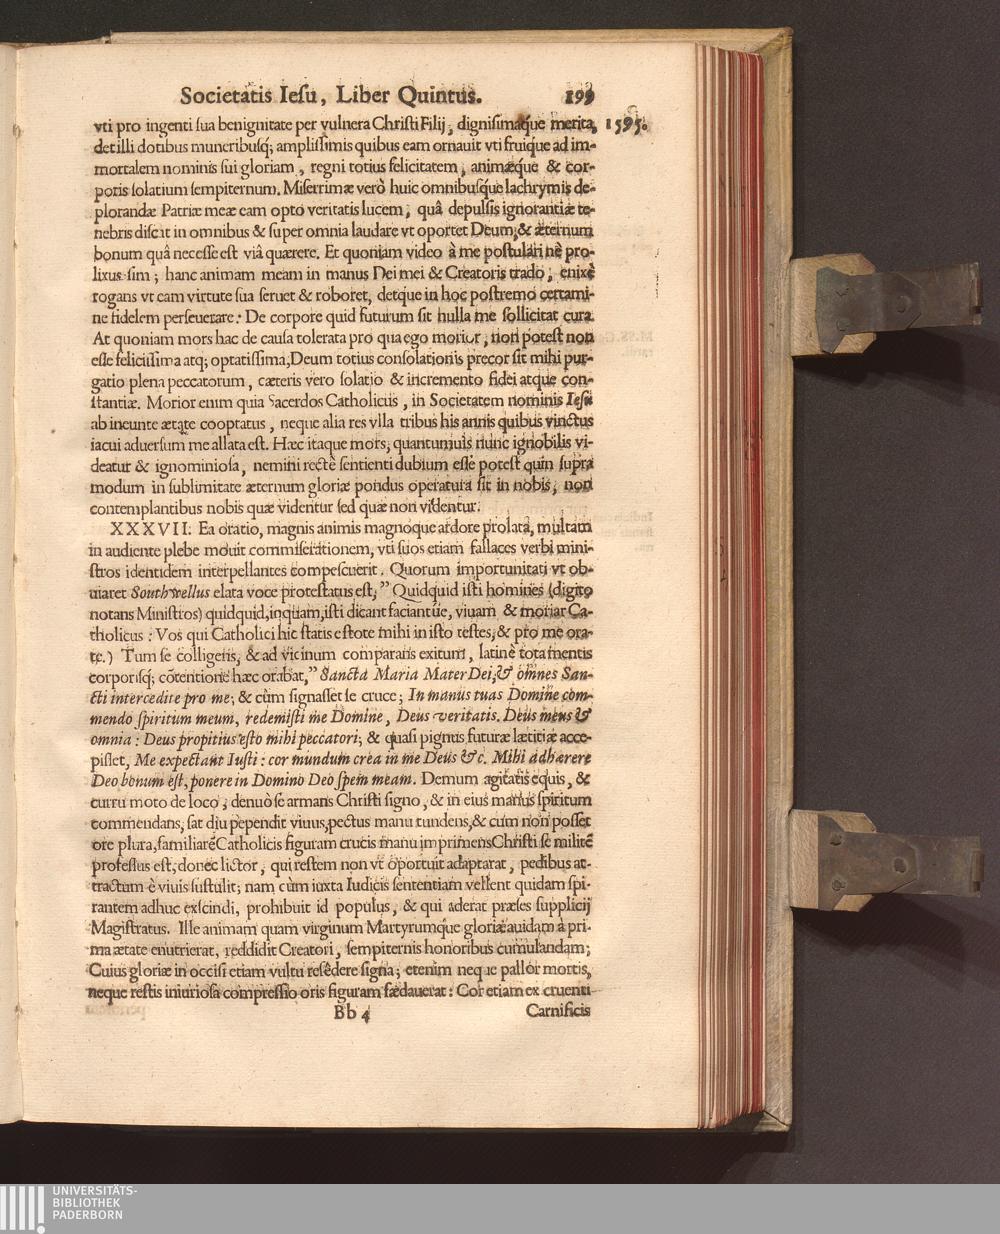 Societatis Iesu, Liber Quintus. 199
vti pro ingenti sua benignitate per vulnera Christi Filij, dignisimaq́ue merita, 1595.
det illi dotibus muneribusq; amplissimis quibus eam ornauit vti fruique ad im-
mortalem nominis sui gloriam, regni totius felicitatem, animæq́ue & cor-
poris solatium sempiternum. Miserrimæ verò huic omnibusq́ue lachrymis de-
plorandæ Patriæ meæ eam opto veritatis lucem, quâ depulsis ignorantiæ te-
nebris discat in omnibus & super omnia laudare vt oportet Deum, & æternum
bonum quâ necesse est viâ quærere. Et quoniam video à me postulari nè pro-
lixus sim; hanc animam meam in manus Dei mei & Creatoris trado, enixè
rogans vt eam virtute sua seruet & roboret, detque in hoc postremo certami-
ne fidelem perseuerare. De corpore quid futurum sit nulla me sollicitat cura.
At quoniam mors hac de causa tolerata pro qua ego morior, non potest non
esse felicissima atq; optatissima, Deum totius consolationis precor sit mihi pur-
gatio plena peccatorum, cæteris vero solatio & incremento fidei atque con-
stantiæ. Morior enim quia Sacerdos Catholicus, in Societatem nominis Iesu
ab ineunte ætate cooptatus, neque alia res vlla tribus his annis quibus vinctus
iacui aduersum me allata est. Hæc itaque mors, quantumuis nunc ignobilis vi-
deatur & ignominiosa, nemini rectè sentienti dubium esse potest quin supra
modum in sublimitate æternum gloriæ pondus operatura sit in nobis, non
contemplantibus nobis quæ videntur sed quæ non videntur.
XXXVII. Ea oratio, magnis animis magnoque ardore prolata, multam
in audiente plebe mouit commiserationem, vti suos etiam fallaces verbi mini-
stros identidem interpellantes compescuerit. Quorum importunitati vt ob-
uiaret Southwellus elata voce protestatus est, ” Quidquid isti homines (digito
notans Ministros) quidquid, inquam, isti dicant faciantue, viuam & moriar Ca-
tholicus: Vos qui Catholici hic statis estote mihi in isto testes, & pro me ora-
te.) Tum se colligens, & ad vicinum comparans exitum, latinè tota mentis
corporisq; cōtentione hæc orabat, ” Sancta Maria Mater Dei, & omnes San-
cti intercedite pro me; & cùm signasset se cruce; In manus tuas Domine com-
mendo spiritum meum, redemisti me Domine, Deus veritatis. Deus meus &
omnia: Deus propitius esto mihi peccatori; & quasi pignus futuræ lætitiæ acce-
pisset, Me expectant Iusti: cor mundum crea in me Deus &c. Mihi adhærere
Deo bonum est, ponere in Domino Deo spem meam. Demum agitatis equis, &
curru moto de loco, denuò se armans Christi signo, & in eius manus spiritum
commendans, sat diu pependit viuus, pectus manu tundens, & cum non posset
ore plura, familiarē Catholicis figuram crucis manu imprimens Christi se militē
professus est, donec lictor, qui restem non vt oportuit adaptarat, pedibus at-
tractum è viuis sustulit; nam cùm iuxta Iudicis sententiam vellent quidam spi-
rantem adhuc exscindi, prohibuit id populus, & qui aderat præses supplicij
Magistratus. Ille animam quam virginum Martyrumq́ue gloriæ auidam à pri-
ma ætate enutrierat, reddidit Creatori, sempiternis honoribus cumulandam;
Cuius gloriæ in occisi etiam vultu resêdere signa; etenim neque pallor mortis,
neque restis iniuriosa compressio oris figuram fædauerat: Cor etiam ex cruenti
Bb 4 Carnificis
UNIVERSITÄTS-
BIBLIOTHEK
PADERBORN